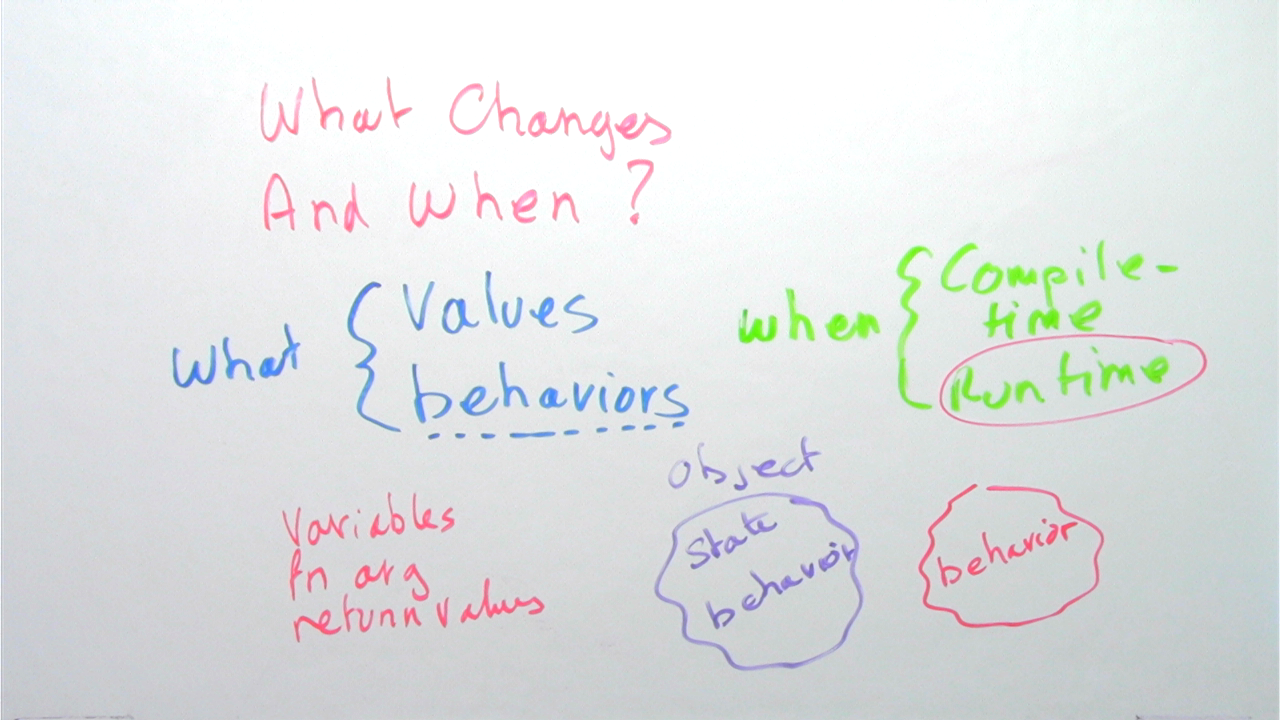 What Changes
And When ?
What { Values
behaviors
when { Compile-
time
Runtime
Variables
fn arg
return values
Object
State
behavior
behavior